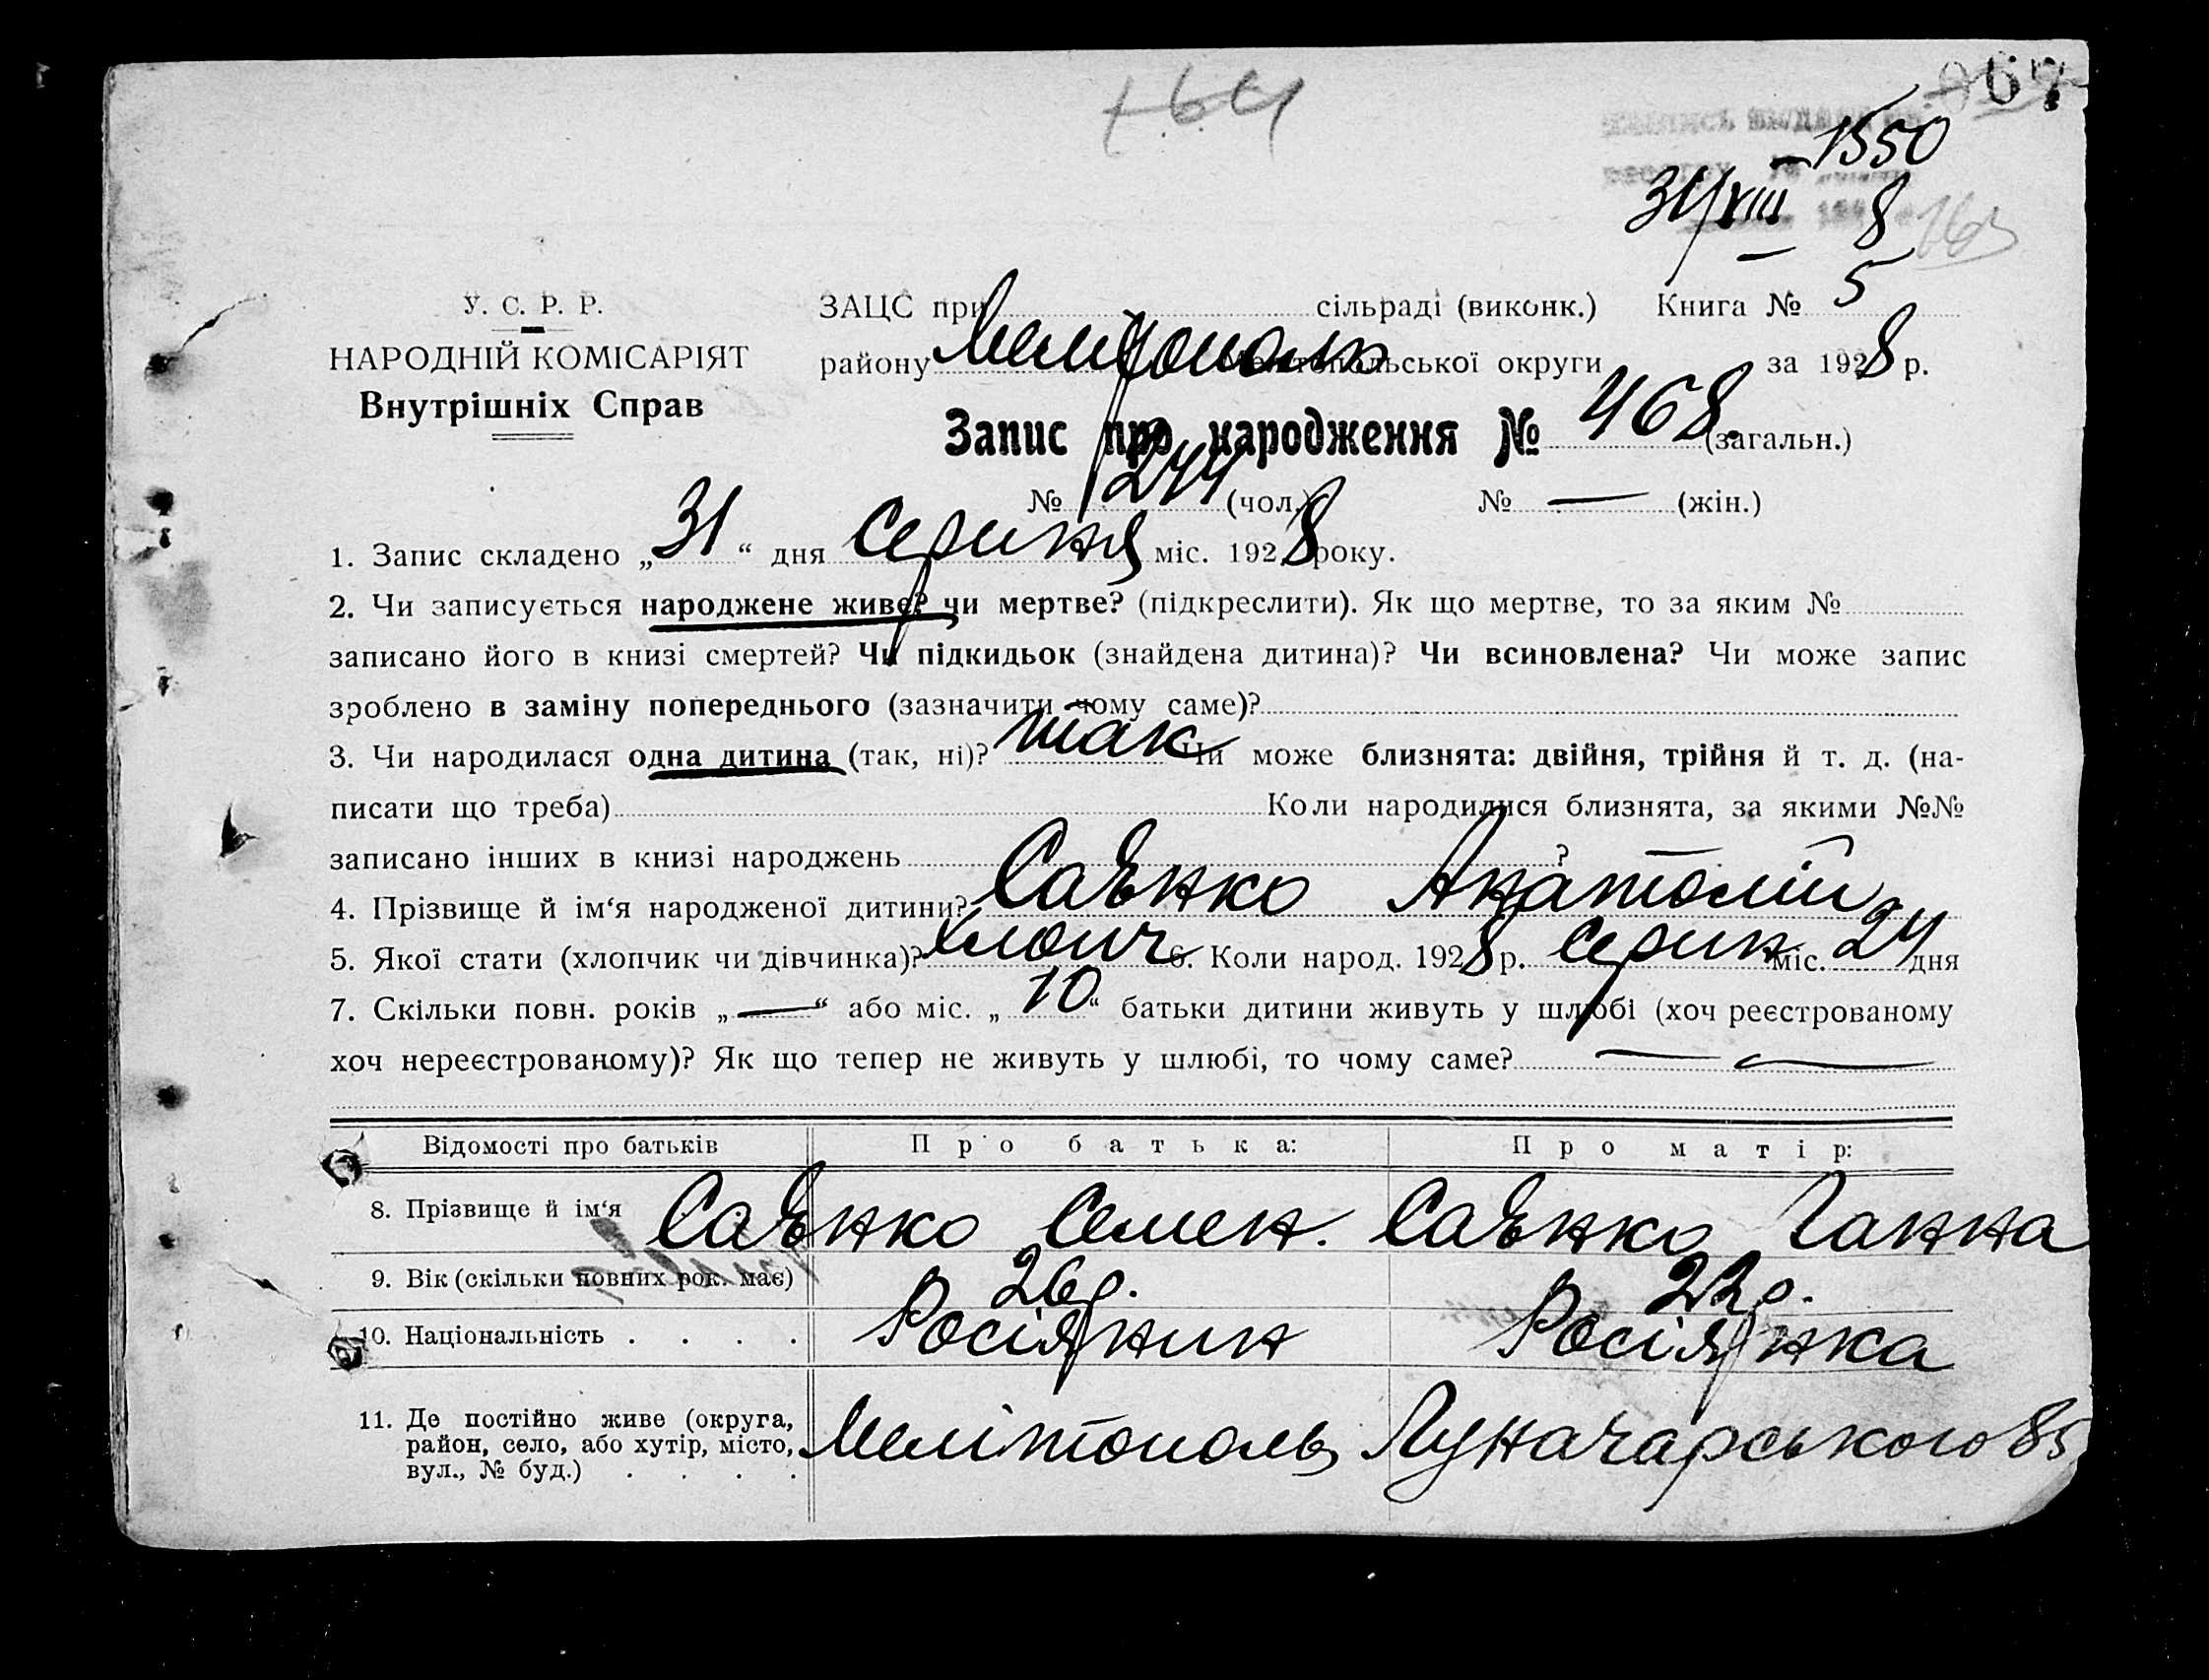 164
067
1550
31/VIII 8
163
У. С. Р. Р.
НАРОДНІЙ КОМІСАРІЯТ
Внутрішніх Справ
ЗАЦС при сільраді (виконк.) Книга № 5
району Мелітополь Мелітопольської округи за 1928 р.
Запис про народження № 468 (загальн.)
№ 244 (чол.) № — (жін.)
1. Запис складено „31“ дня Серпня міс. 1928 року.
2. Чи записується народжене живе? чи мертве? (підкреслити). Як що мертве, то за яким №
записано його в книзі смертей? Чи підкидьок (знайдена дитина)? Чи всиновлена? Чи може запис
зроблено в заміну попереднього (зазначити чому саме)?
3. Чи народилася одна дитина (так, ні)? так Чи може близнята: двійня, трійня й т. д. (на-
писати що треба) Коли народилися близнята, за якими №№
записано інших в книзі народжень ?
4. Прізвище й ім‘я народженої дитини? Саєнко Анатолій
5. Якої стати (хлопчик чи дівчинка)? хлопч 6. Коли народ. 1928 р. Серпн. міс. 24 дня
7. Скільки повн. років „—“ або міс. „10“ батьки дитини живуть у шлюбі (хоч реєстрованому
хоч нереєстрованому)? Як що тепер не живуть у шлюбі, то чому саме? — —
Відомості про батьків Про батька: Про матір:
8. Прізвище й ім‘я Саєнко Семен. Саєнко Ганна
9. Вік (скільки повних рок. має) 26 р. 22 р.
10. Національність . . . . Росіянин Росіянка
11. Де постійно живе (округа,
район, село, або хутір, місто,
вул., № буд.) . . . . Мелітополь Луначарського 85